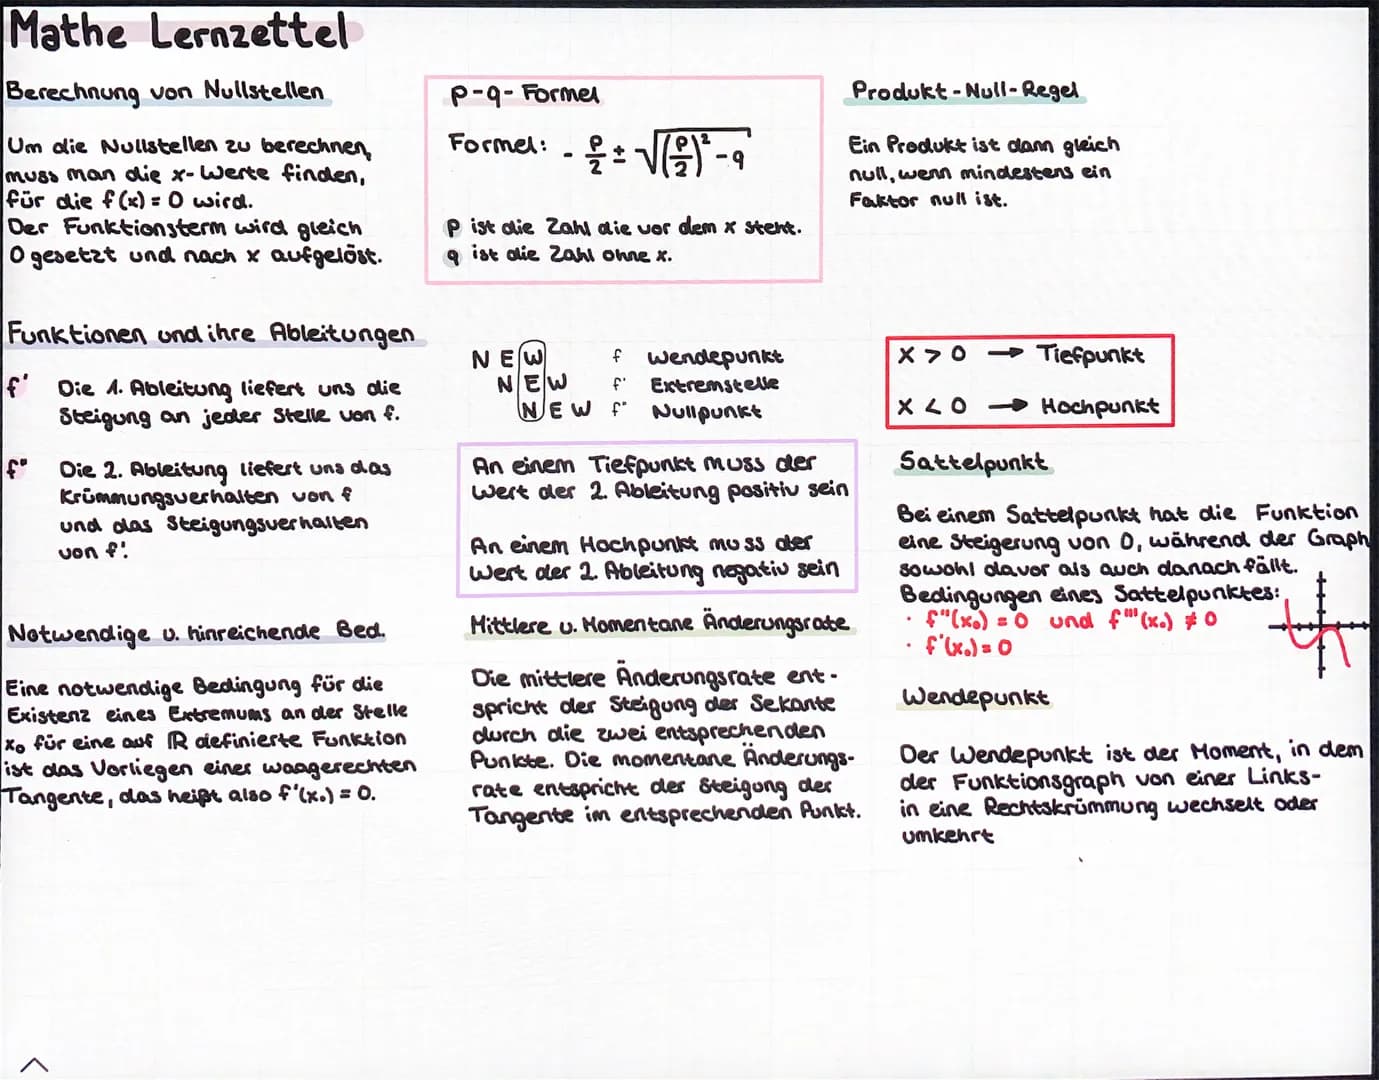 Mathe Lernzettel
Berechnung von Nullstellen
Um die Nullstellen zu berechnen,
muss man die x-Werte finden,
für die f(x) = 0 wird.
Der Funktionsterm wird gleich
0 gesetzt und nach x aufgelöst.
p-q-Formel
Formel: - p/2 ± √((p/2)² - q)
p ist die Zahl die vor dem x steht.
q ist die Zahl ohne x.
Produkt-Null-Regel
Ein Produkt ist dann gleich
null, wenn mindestens ein
Faktor null ist.
Funktionen und ihre Ableitungen
f' Die 1. Ableitung liefert uns die
Steigung an jeder Stelle von f.
f" Die 2. Ableitung liefert uns das
Krümmungsverhalten von f
und das Steigungsverhalten
von f'.
N E W f Wendepunkt
N E W f' Extremstelle
N E W f" Nullpunkt
x > 0 → Tiefpunkt
x < 0 → Hochpunkt
An einem Tiefpunkt muss der
Wert der 2. Ableitung positiv sein
An einem Hochpunkt muss der
Wert der 2. Ableitung negativ sein
Sattelpunkt
Bei einem Sattelpunkt hat die Funktion
eine Steigerung von 0, während der Graph
sowohl davor als auch danach fällt.
Bedingungen eines Sattelpunktes:
· f"(x₀) = 0 und f"'(x₀) ≠ 0
· f'(x₀) = 0
Notwendige u. hinreichende Bed.
Eine notwendige Bedingung für die
Existenz eines Extremums an der Stelle
x₀ für eine auf ℝ definierte Funktion
ist das Vorliegen einer waagerechten
Tangente, das heißt also f'(x₀) = 0.
Mittlere u. Momentane Änderungsrate
Die mittlere Änderungsrate ent-
spricht der Steigung der Sekante
durch die zwei entsprechenden
Punkte. Die momentane Änderungs-
rate entspricht der Steigung der
Tangente im entsprechenden Punkt.
Wendepunkt
Der Wendepunkt ist der Moment, in dem
der Funktionsgraph von einer Links-
in eine Rechtskrümmung wechselt oder
umkehrt